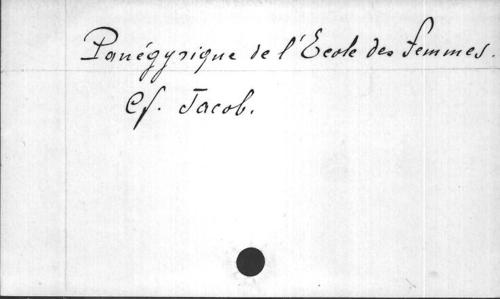 Panégyrique de l'Ecole des femmes.
Cf. Jacob.